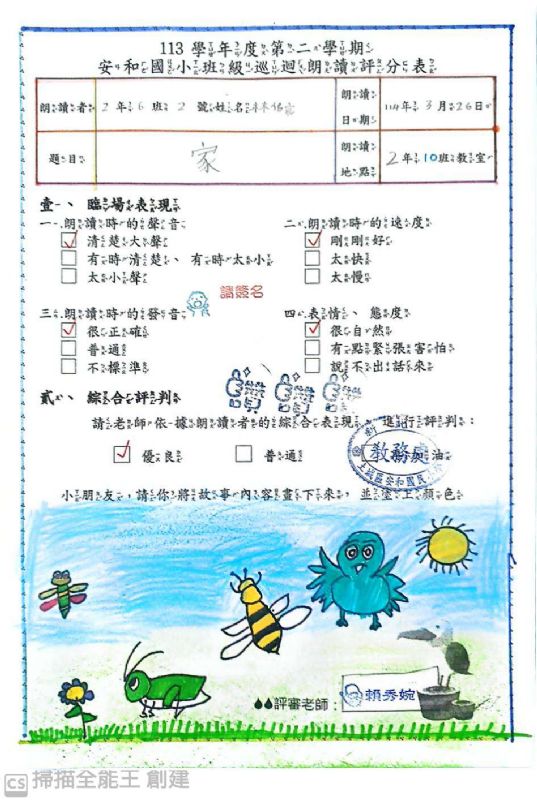 113 學年度第二學期
安和國小班級巡迴朗讀評分表
朗讀者 2年6班2號姓名林
朗讀日期 114年3月26日
題目 家
朗讀地點 2年10班教室
壹、臨場表現
一、朗讀時的聲音 二、朗讀時的速度
清楚大聲 剛剛好
有時清楚、有時太小 太快
太小聲 太慢
請簽名
三、朗讀時的發音 四、表情、態度
很正確 很自然
普通 有點緊張害怕
不標準 說不出話來
讚 讚 讚
貳、綜合評判
請老師依據朗讀者的綜合表現,進行評判:
優良 普通 油
教務處
土城區安和國民
小朋友,請你將故事內容畫下來,並塗上顏色
評審老師:賴秀婉
CS 掃描全能王 創建